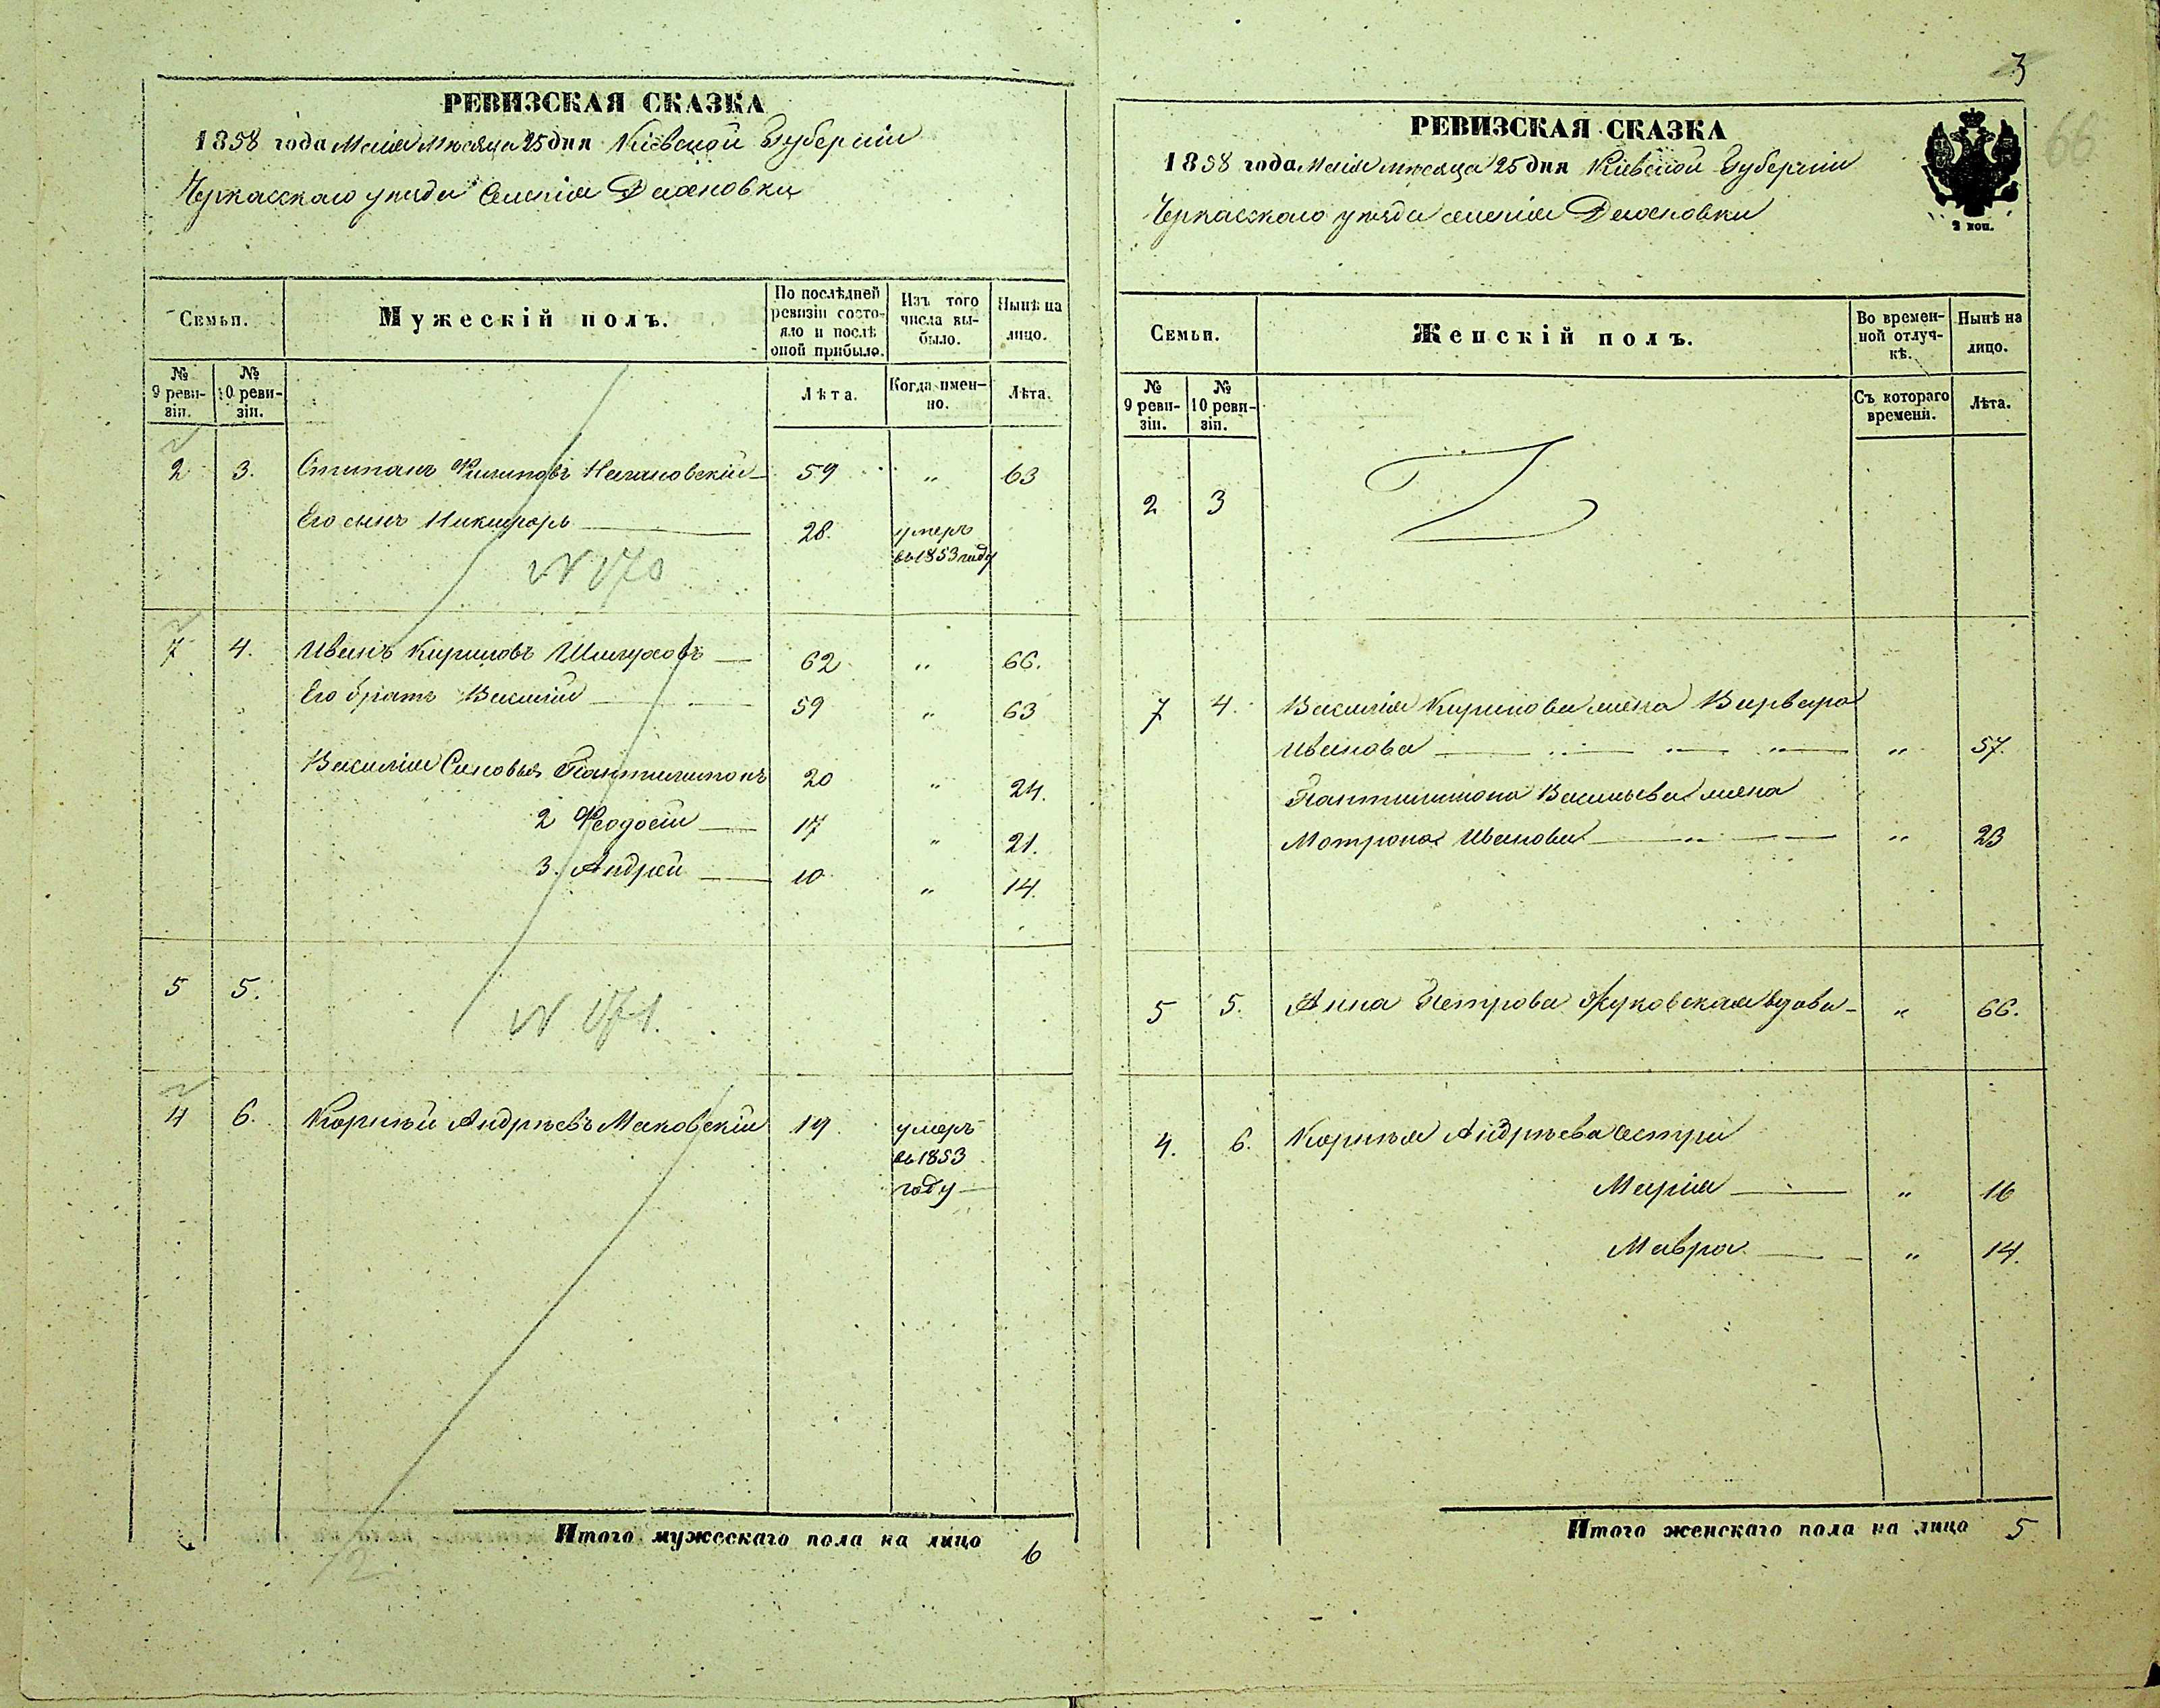 РЕВИЗСКАЯ СКАЗКА
1858 года Маія мѣсяца 25 дня Кіевской Губерніи
Черкасскаго уѣзда Селенія
Семьи.
Мужескій полъ.
По послѣдней ревизіи состояло и послѣ оной прибыло.
Изъ того числа выбыло.
Нынѣ на лицо.
№ 9 ревизіи.
№ 10 ревизіи.
Лѣта.
Когда именно.
Лѣта.
2 3. Степанъ Филиповъ 59 " 63
Его сынъ Никифоръ 28. умеръ
въ 1853 году
N 170
7 4. Иванъ Кириловъ 62 " 66.
Его братъ Василій 59 " 63
Василія Сыновья Пантилимонъ 20 " 24.
2 Феодосій 17 " 21.
3. Андрей 10 " 14.
5 5.
N 171.
4 6. Корнѣй Андрѣевъ Маковскій 19 умеръ
въ 1853
году
Итого мужескаго пола на лицо 6
12.
3
66
РЕВИЗСКАЯ СКАЗКА
1858 года Маія мѣсяца 25 дня Кіевской Губерніи
Черкасскаго уѣзда селенія
2 коп.
Семьи.
Женскій полъ.
Во временной отлучкѣ.
Нынѣ на лицо.
№ 9 ревизіи.
№ 10 ревизіи.
Съ котораго времени.
Лѣта.
2 3
7 4. Василія Кирилова жена Варвара
Иванова " 57.
Пантилимона Васильева жена
Мотрона Иванова " 23
5 5. Анна Петрова Жуковская вдова " 66.
4. 6. Корнѣя Андрѣева сестри
Марія " 16
Мавра " 14.
Итого женскаго пола на лицо 5